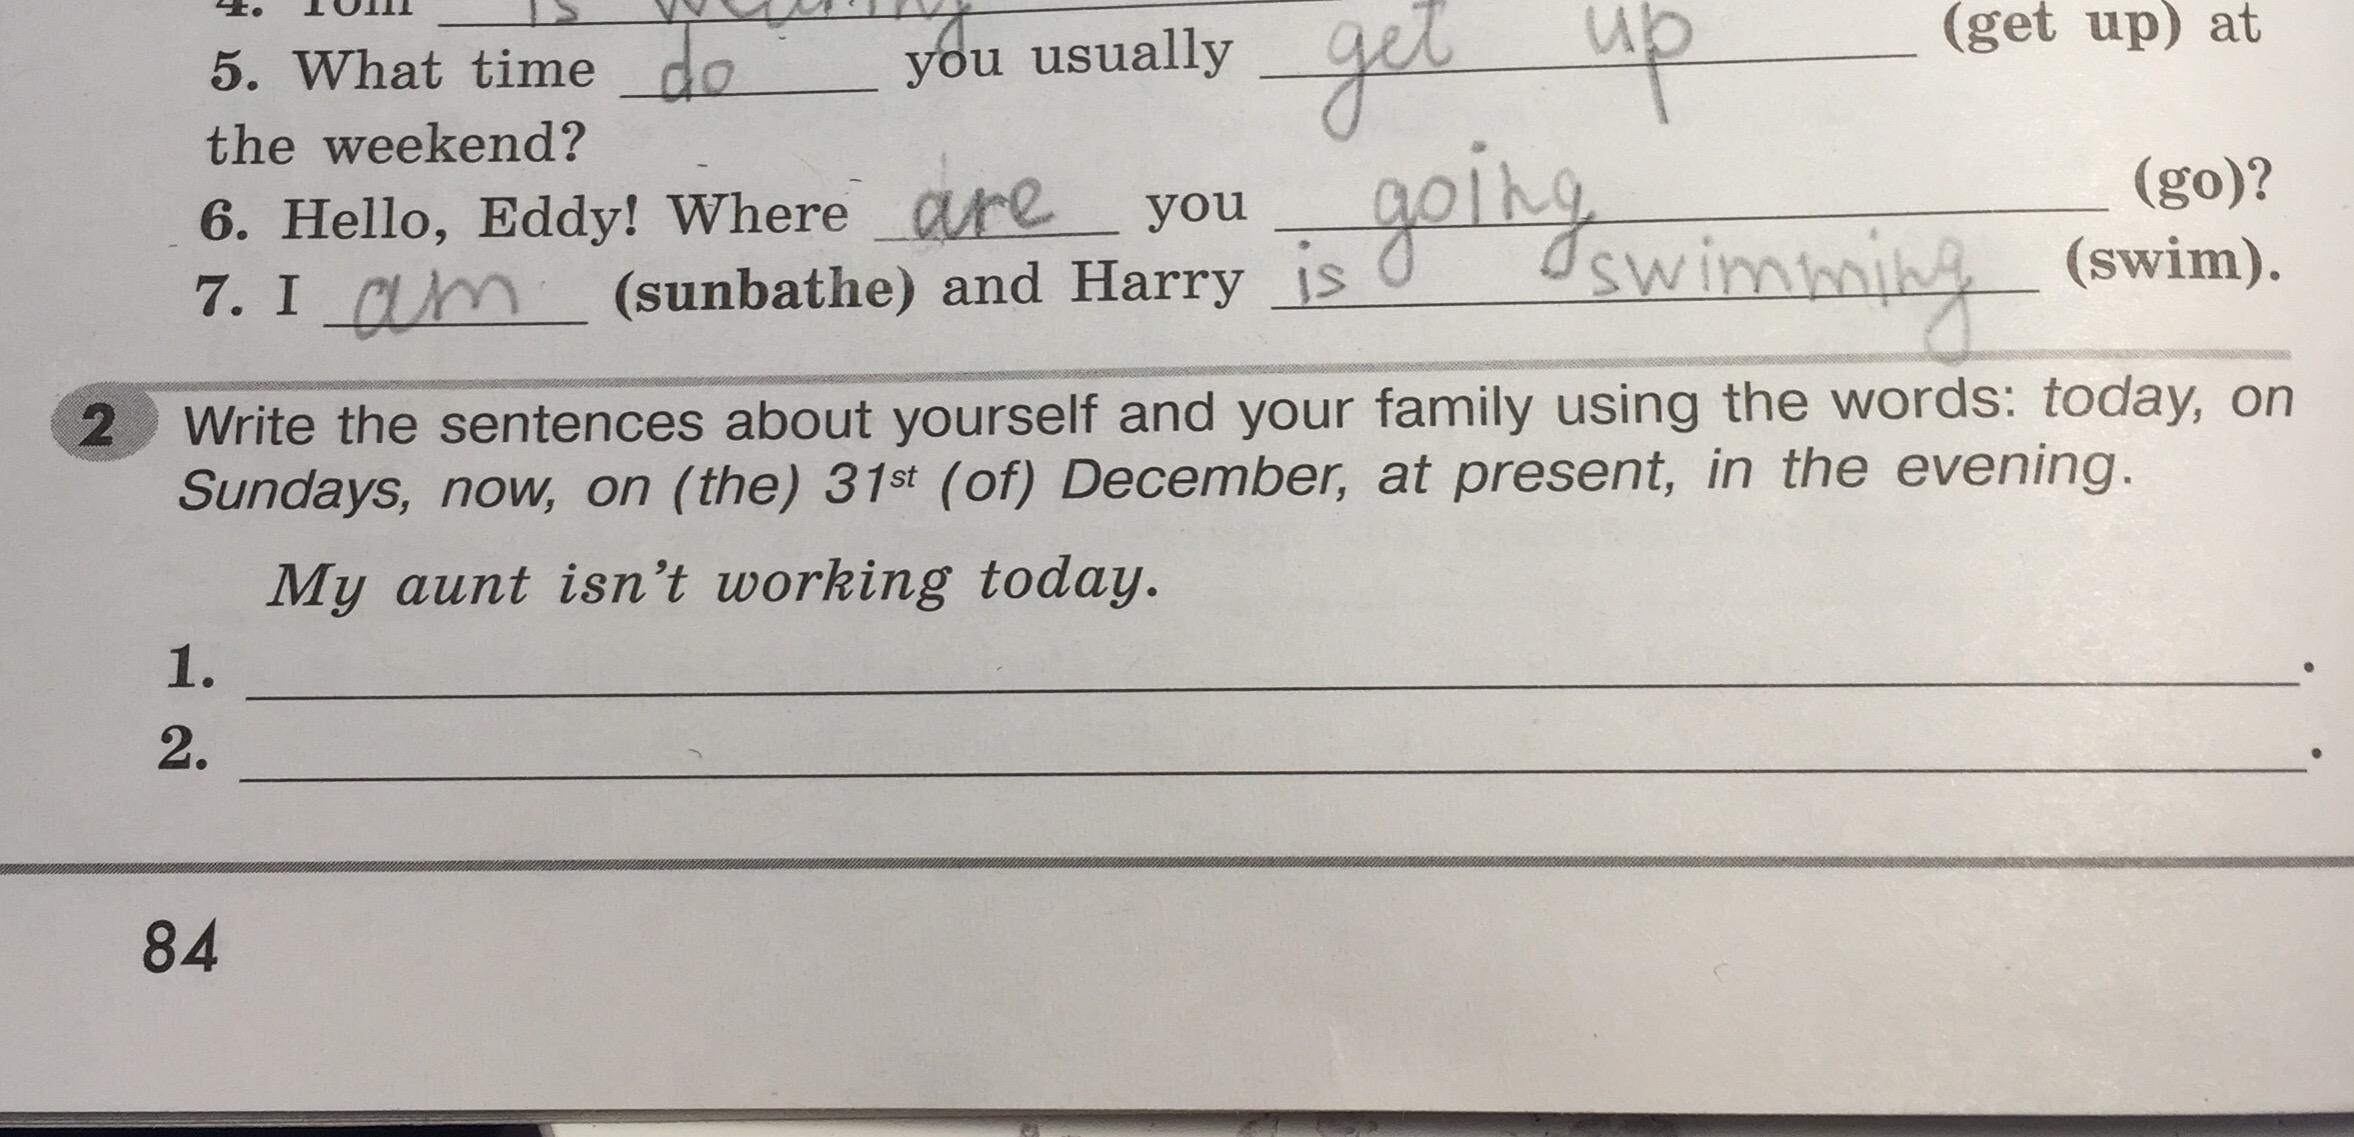 4. Tom is wearing
5. What time do you usually get up (get up) at
the weekend?
6. Hello, Eddy! Where are you going (go)?
7. I am (sunbathe) and Harry is swimming (swim).
2 Write the sentences about yourself and your family using the words: today, on
Sundays, now, on (the) 31st (of) December, at present, in the evening.
My aunt isn't working today.
1. .
2. .
84